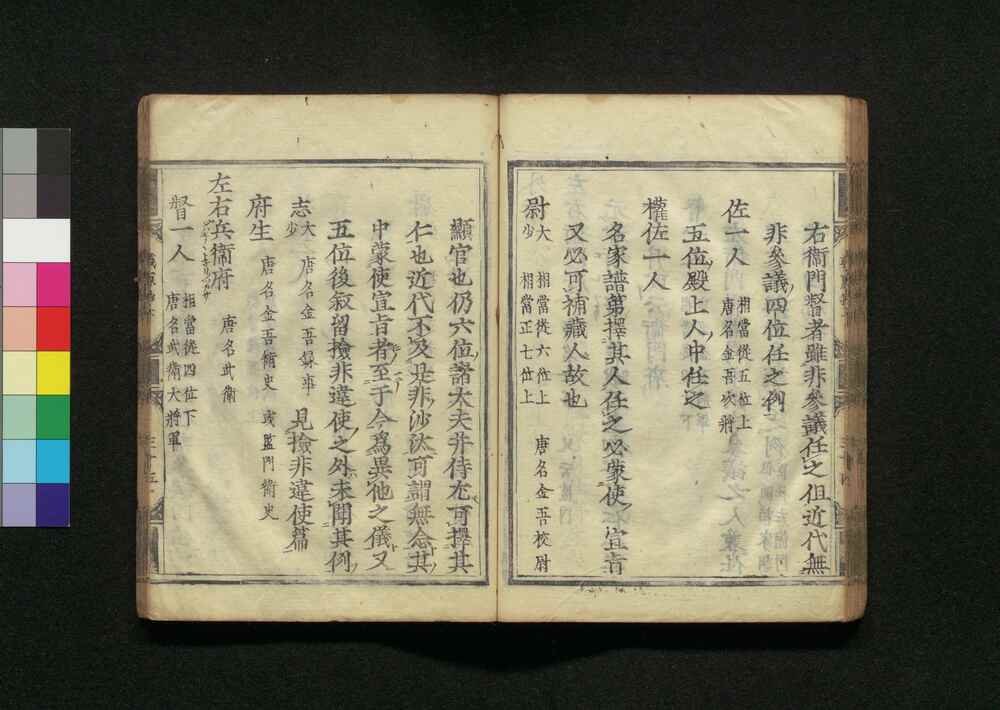 右衞門督者雖非參議任之但近代無
非參議四位任之例
佐一人
相當從五位上
唐名金吾次將
五位殿上人中任之
權佐一人
名家譜第擇其人任之必蒙使宣旨
又必可補藏人故也
尉大少
相當從六位上
相當正七位上
唐名金吾校尉
顯官也仍六位諸大夫并侍尤可擇其
仁也近代不及是非沙汰可謂無念其
中蒙使宣旨者至于今爲異他之儀又
五位後叙留撿非違使之外未聞其例
志大少
唐名金吾錄事
見撿非違使篇
府生
唐名金吾衞史
或監門衞史
左右兵衞府
唐名武衞
督一人
相當從四位下
唐名武衞大將軍